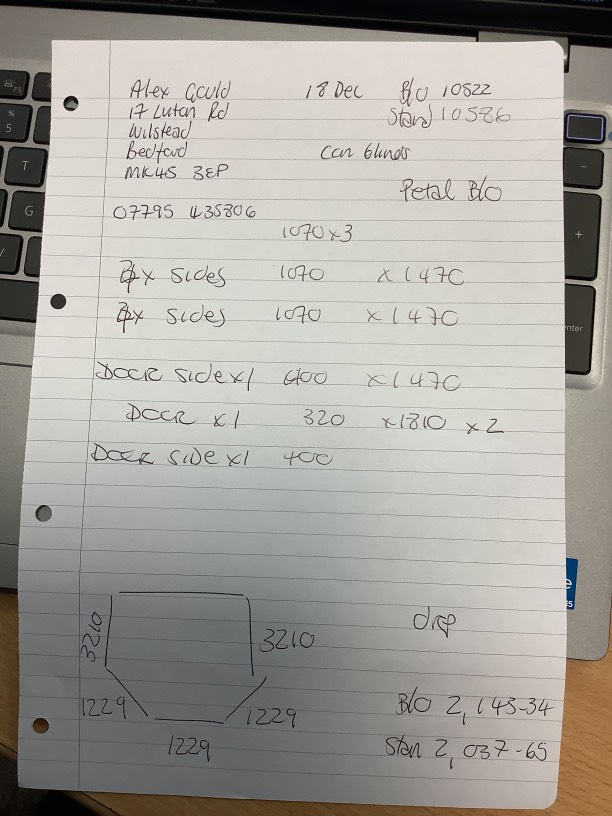 Alex Gould 18 Dec B/O 10522
17 Luton Rd Stand 10586
Wilstead
Bedford Con blinds
MK45 3EP
Petal B/O
07795 435806
1070 x 3
x sides 1070 x 1470
x sides 1070 x 1470
DOOR side x1 400 x 1470
DOOR x1 320 x1810 x2
DOOR SIDE x1 400
drop
3210 3210
1229 1229
1229
B/O 2,143-34
Stan 2,037-65